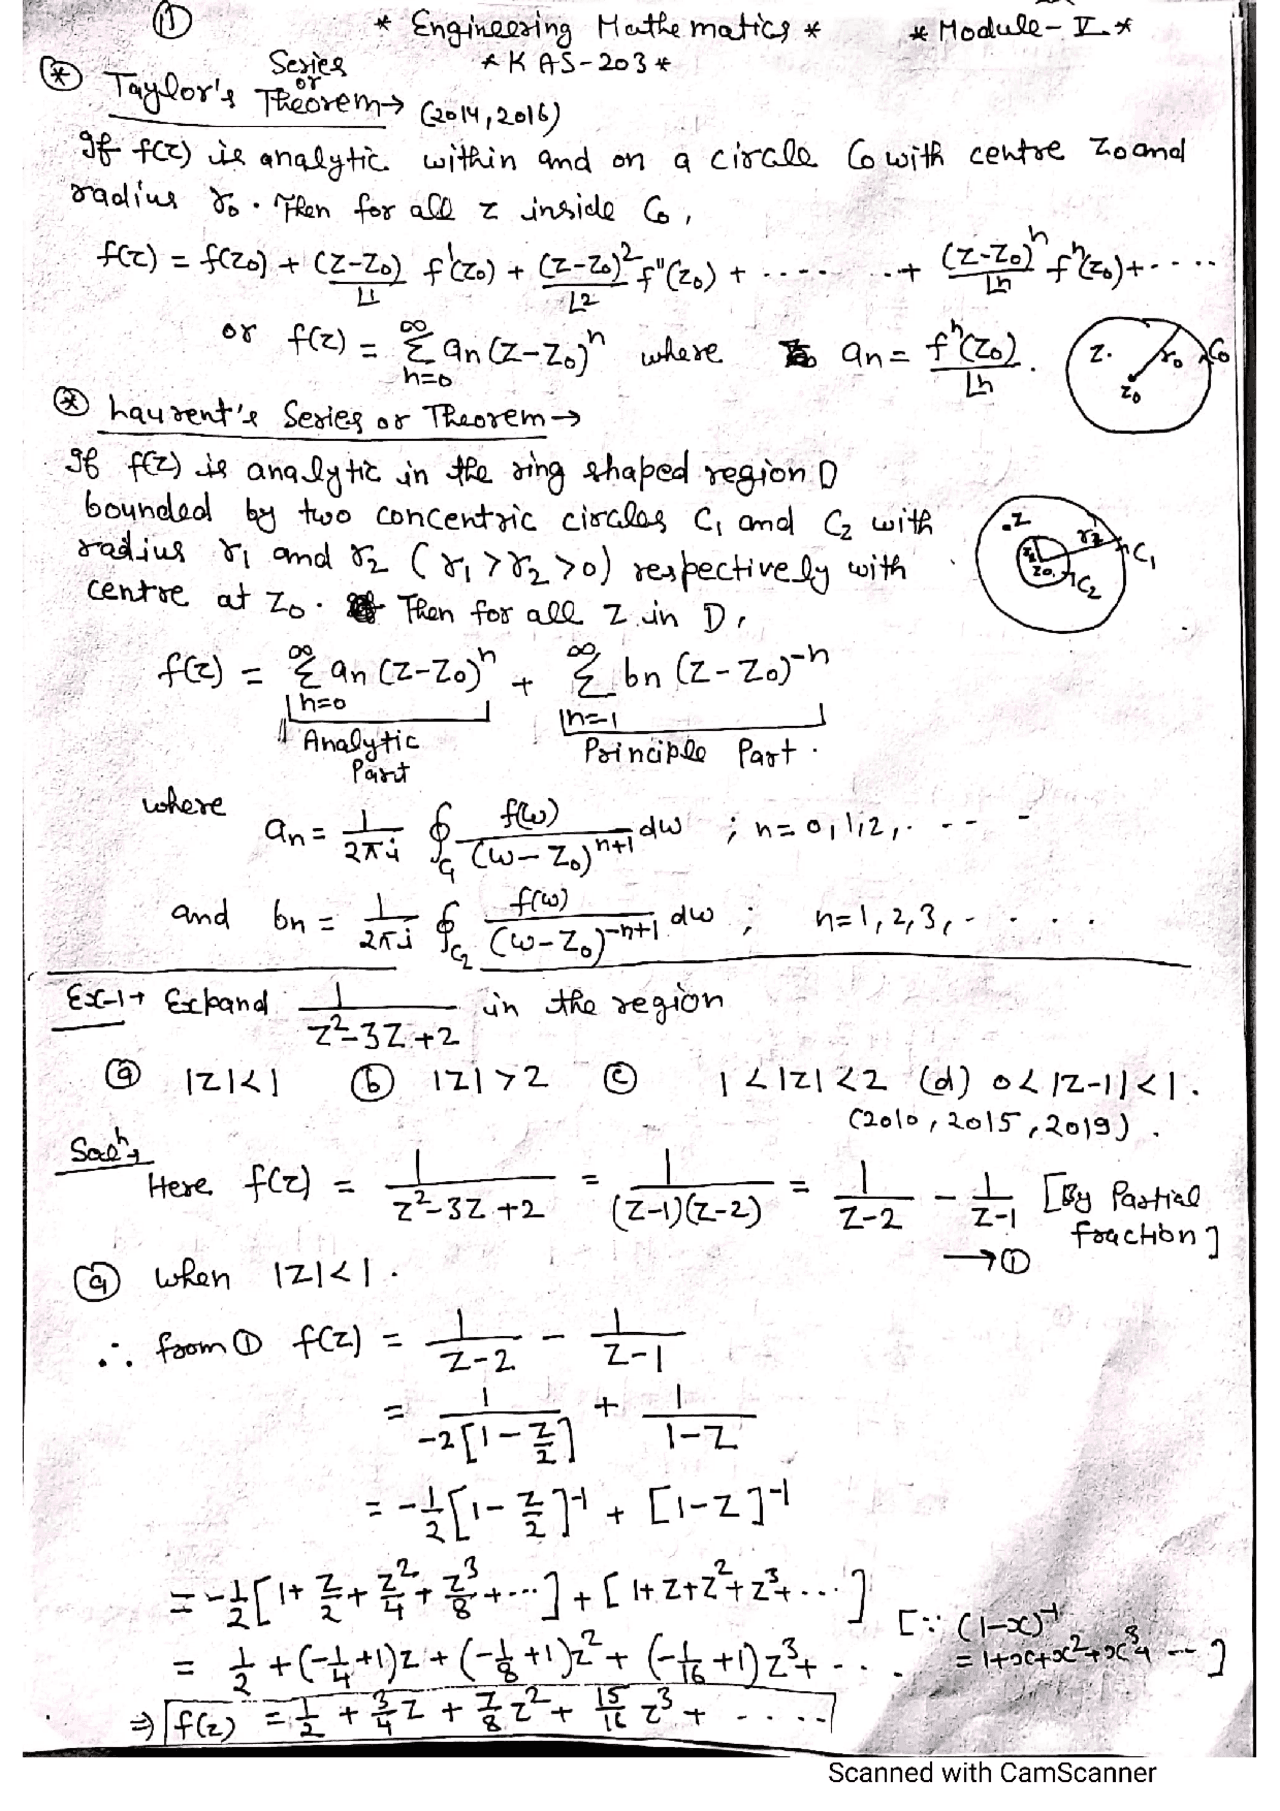 ① * Engineering Mathematics * * Module-V *
* KAS-203 *
⊛ Taylor's Series or Theorem → (2014, 2016)
If f(z) is analytic within and on a circle C₀ with centre z₀ and
radius r₀. Then for all z inside C₀,
f(z) = f(z₀) + (z-z₀)/∟1 f'(z₀) + (z-z₀)²/∟2 f''(z₀) + ..... ..+ (z-z₀)ⁿ/∟n fⁿ(z₀)+.....
or f(z) = ∞Σn=0 an(z-z₀)ⁿ where an = fⁿ(z₀)/∟n.
z. r₀ C₀
z₀
⊛ Laurent's Series or Theorem →
If f(z) is analytic in the ring shaped region D
bounded by two concentric circles C₁ and C₂ with
radius r₁ and r₂ (r₁>r₂>0) respectively with
centre at z₀. Then for all z in D,
.z r₂ C₁
z₀ C₂
f(z) = ∞Σn=0 an(z-z₀)ⁿ + ∞Σn=1 bn(z-z₀)⁻ⁿ
Analytic Part Principle Part.
where an = 1/2πi ∮C₁ f(w)/(w-z₀)ⁿ⁺¹ dw ; n=0,1,2,. - - -
and bn = 1/2πi ∮C₂ f(w)/(w-z₀)⁻ⁿ⁺¹ dw ; n=1,2,3,. . . .
Ex-1→ Expand 1/z²-3z+2 in the region
ⓐ |z|<1 ⓑ |z|>2 ⓒ 1<|z|<2 (d) 0<|z-1|<1.
(2010, 2015, 2019).
Solⁿ→
Here f(z) = 1/z²-3z+2 = 1/(z-1)(z-2) = 1/z-2 - 1/z-1 [By Partial fraction]
→①
ⓐ when |z|<1.
∴ from ① f(z) = 1/z-2 - 1/z-1
= 1/-2[1-z/2] + 1/1-z
= -1/2[1-z/2]⁻¹ + [1-z]⁻¹
= -1/2[1+z/2+z²/4+z³/8+...] + [1+z+z²+z³+...]
[∵ (1-x)⁻¹
= 1/2 + (-1/4+1)z + (-1/8+1)z² + (-1/16+1)z³+ - . . = 1+x+x²+x³+ --]
⇒ f(z) = 1/2 + 3/4 z + 7/8 z² + 15/16 z³ + . . . . .
Scanned with CamScanner